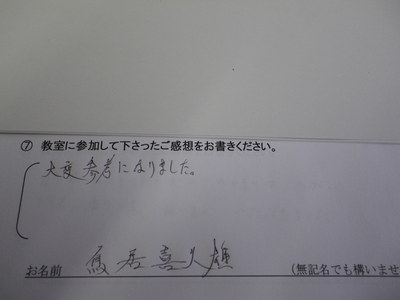 ⑦ 教室に参加して下さったご感想をお書きください。
大変参考になりました。
お名前 馬居喜久雄 (無記名でも構いませ